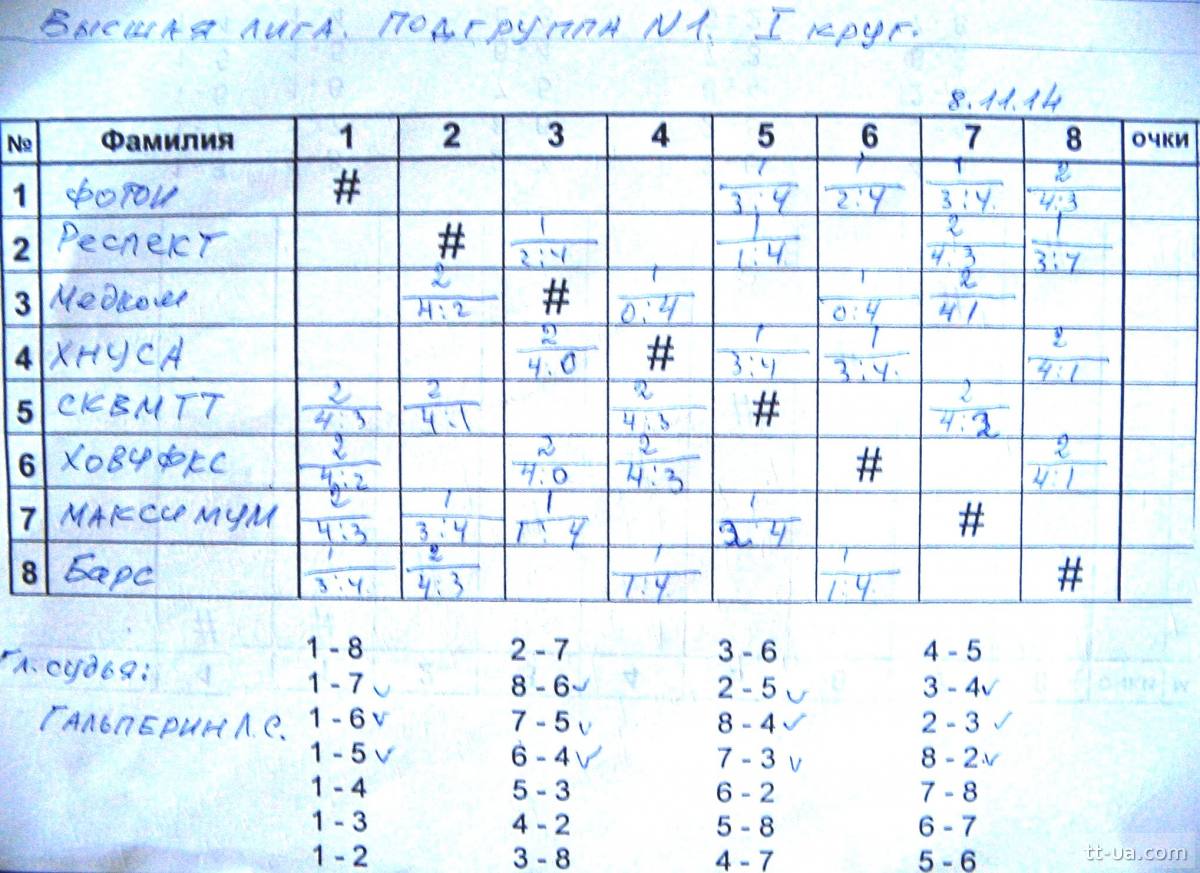 Высшая лига. Подгруппа N1. I круг.
8.11.14
№ Фамилия 1 2 3 4 5 6 7 8 очки
1 Фотон # 1 3:4 1 2:4 1 3:4 2 4:3
2 Респект # 1 2:4 1 1:4 2 4:3 1 3:4
3 Медком 2 4:2 # 1 0:4 1 0:4 2 4:1
4 ХНУСА 2 4:0 # 1 3:4 1 3:4 2 4:1
5 СКВМТТ 2 4:3 2 4:1 2 4:3 # 2 4:2
6 ХОВУФКС 2 4:2 2 4:0 2 4:3 # 2 4:1
7 МАКСИМУМ 2 4:3 1 3:4 1 1:4 1 2:4 #
8 Барс 1 3:4 2 4:3 1 1:4 1 1:4 #
1 - 8 2 - 7 3 - 6 4 - 5
Гл. судья:
1 - 7 8 - 6 2 - 5 3 - 4
Гальперин Л.С.
1 - 6 7 - 5 8 - 4 2 - 3
1 - 5 6 - 4 7 - 3 8 - 2
1 - 4 5 - 3 6 - 2 7 - 8
1 - 3 4 - 2 5 - 8 6 - 7
1 - 2 3 - 8 4 - 7 5 - 6
tt-ua.com